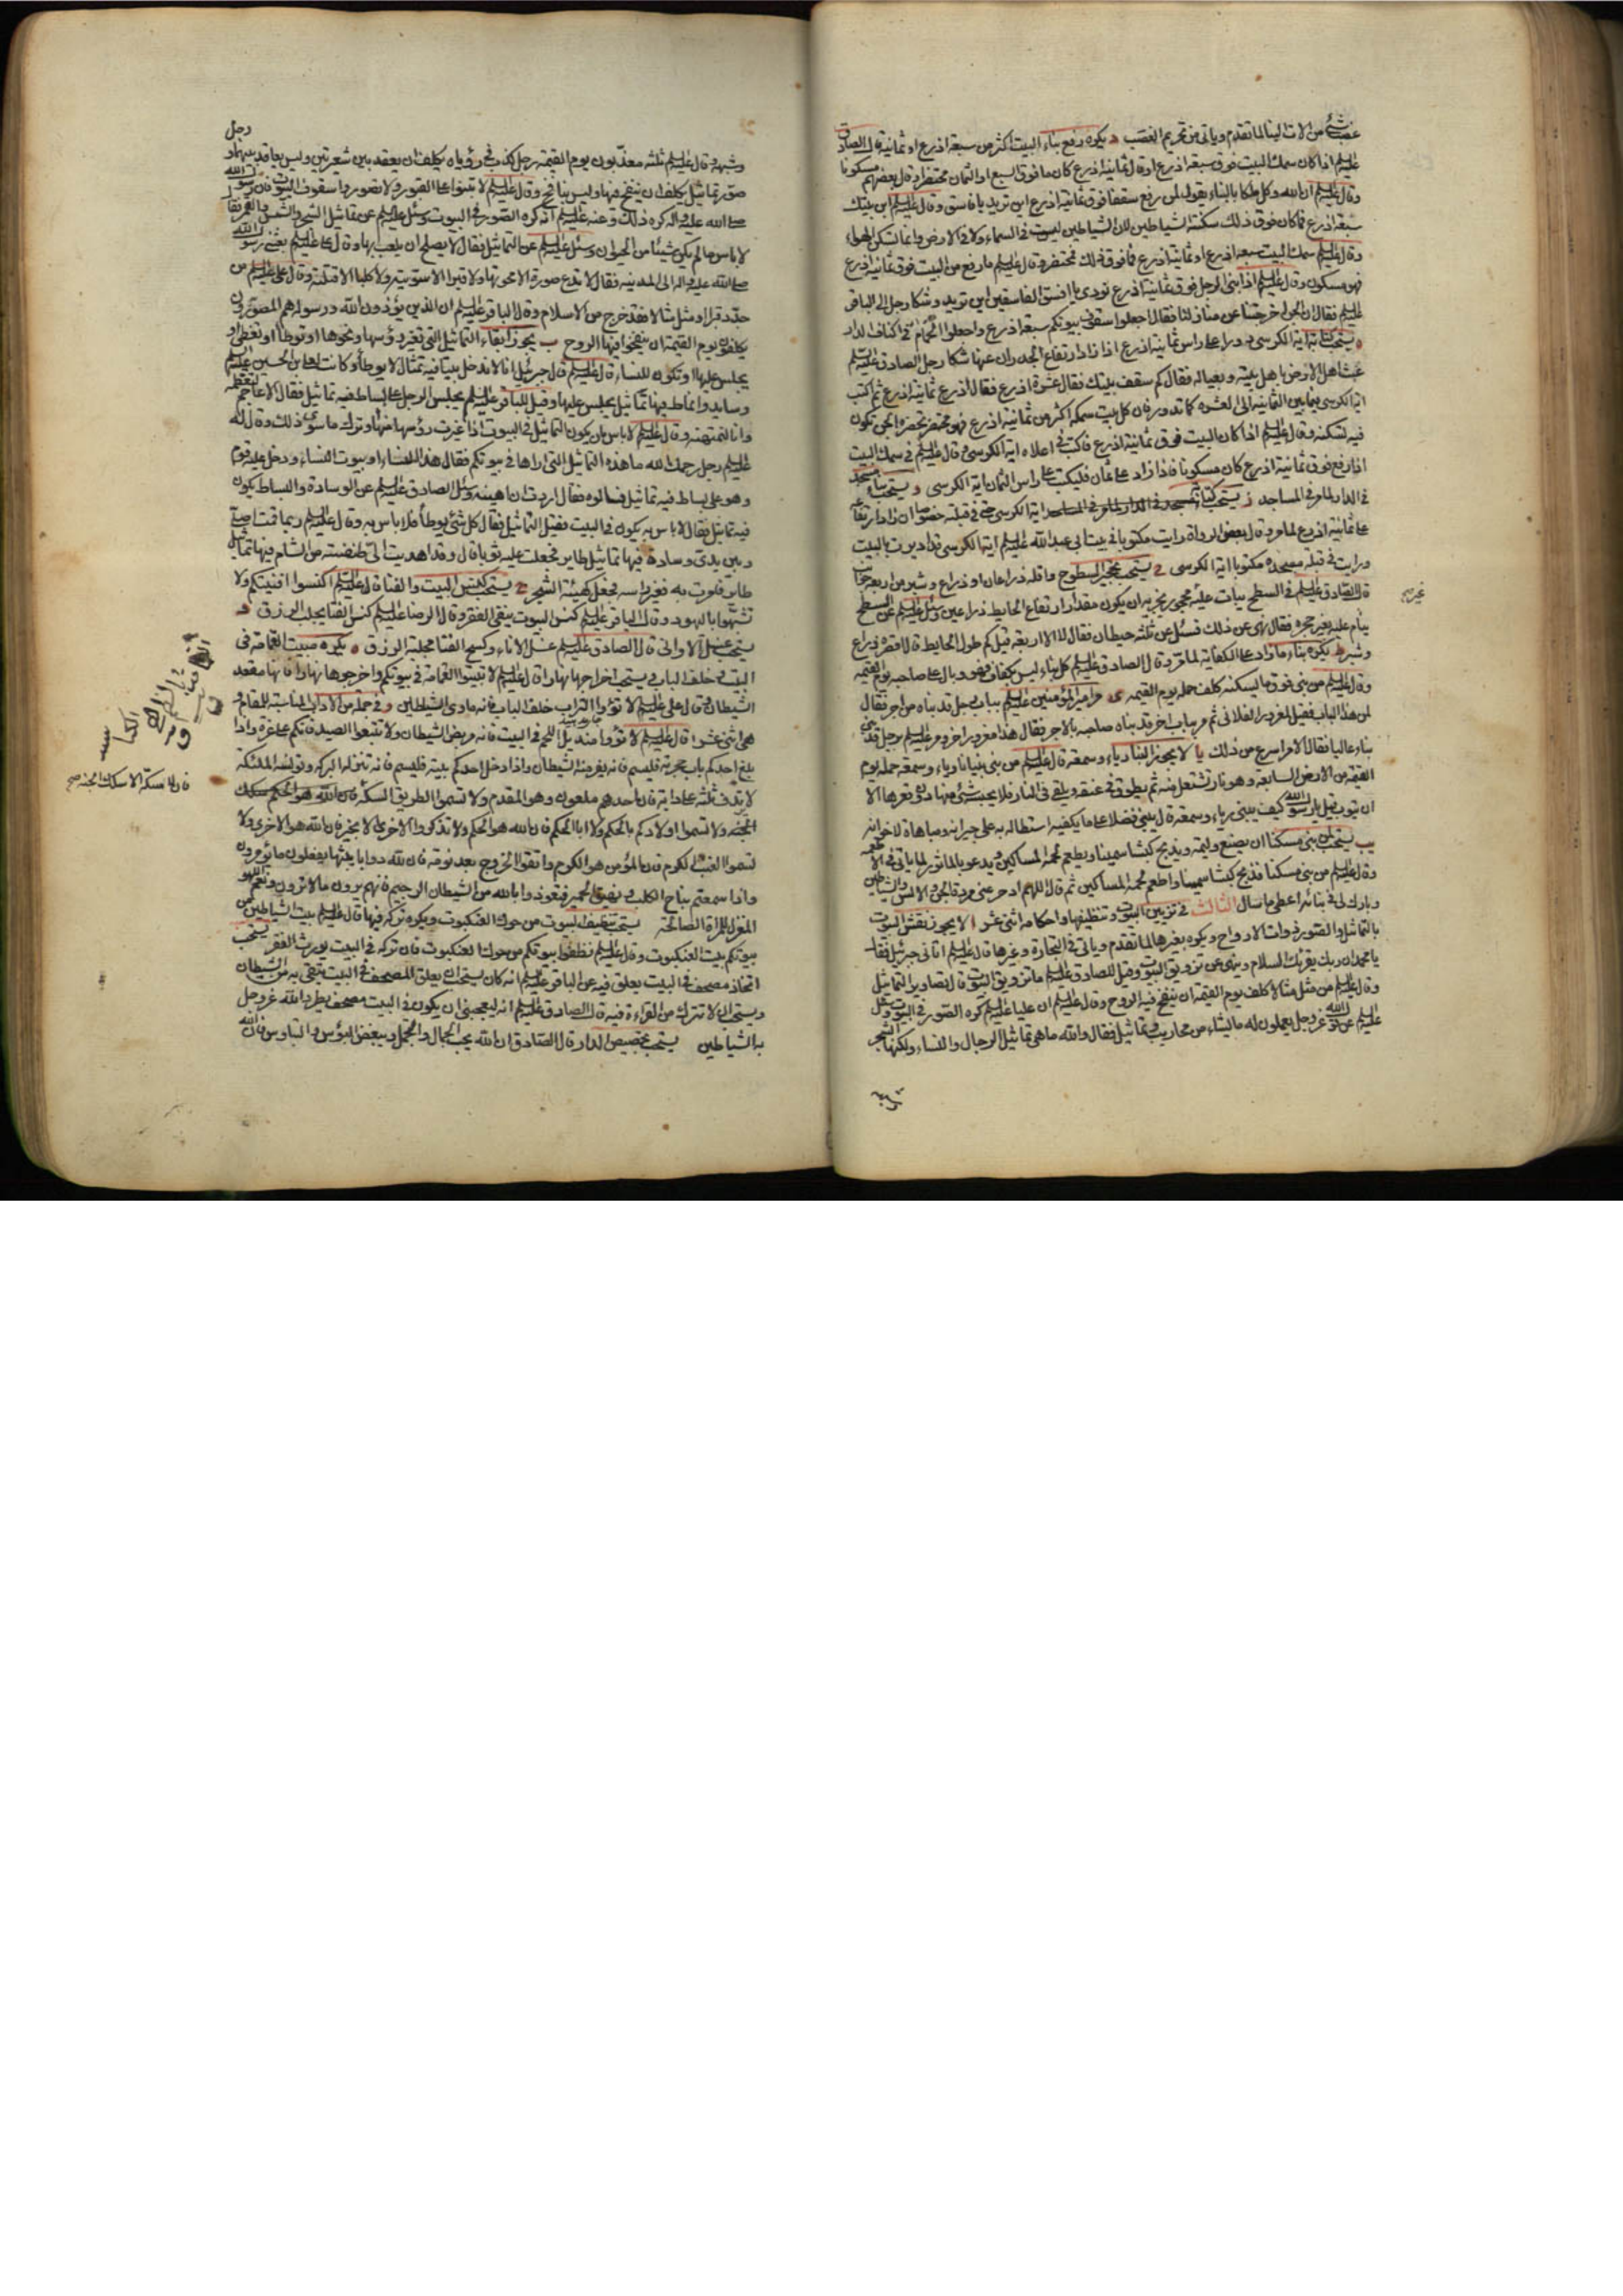 غصب شئ من الات البنا لما تقدم وياتى من تحريم الغصب د يكره رفع بناء البيت اكثر من سبعة اذرع او ثمانية قال الصادق
عليه السلم اذا كان سمك البيت فوق سبعة اذرع او قال ثمانية اذرع كان ما فوق السبع او الثمان محتضرا وقال بعضهم مسكونا
وقال عليه السلم ان الله وكل ملكا بالبناء يقول لمن رفع سقفا فوق ثمانية اذرع اين تريد يا فاسق وقال عليه السلم ابن بيتك
سبعة اذرع فما كان فوق ذلك سكنه الشياطين ان الشياطين ليست فى السماء ولا فى الارض وانما تسكن الهواء
وقال عليه السلم سمك البيت سبعة اذرع او ثمانية اذرع فما فوق ذلك فمحتضر وقال عليه السلم ما رفع من البيت فوق ثمانية اذرع
فهو مسكون وقال عليه السلم اذا بنى الرجل فوق ثمانية اذرع نودى يا افسق الفاسقين اين تريد وشكا رجل الى الباقر
عليه السلم فقال ان الجن اخرجتنا عن منازلنا فقال اجعلوا سقوف بيوتكم سبعة اذرع واجعلوا الحمام فى اكناف الدار
ه يستحب كتابة اية الكرسى دورا على راس ثمانية اذرع اذا زاد ارتفاع الجدران عنها شكا رجل الصادق عليه السلم
عبث اهل الارض باهل بيته وبعياله فقال كم سقف بيتك فقال عشرة اذرع فقال اذرع ثمانية اذرع ثم اكتب
اية الكرسى فيما بين الثمانية الى العشرة كما تدور فان كل بيت سمكه اكثر من ثمانية اذرع فهو محتضر تحضره الجن تكون
فيه تسكنه وقال عليه السلم اذا كان البيت فوق ثمانية اذرع فاكتب فى اعلاه اية الكرسى وقال عليه السلم فى سمك البيت
اذا رفع فوق ثمانية اذرع كان مسكونا فاذا زاد على ثمان فليكتب على راس الثمان اية الكرسى و يستحب بناء مسجد
فى الدار لما مر فى المساجد ز يستحب كتابة اية الكرسى حتى فى قبلته خصوصا ان زاد ارتفاعه
على ثمانية اذرع لما مر وقال بعض الرواة رايت مكتوبا فى بيت ابى عبد الله عليه السلم اية الكرسى قد اديرت بالبيت
ورايت فى قبلة مسجده مكتوبا اية الكرسى ح يستحب تحجير السطوح واقله ذراعان او ذراع وشبر من اربعة جوانب
قال الصادق عليه السلم فى السطح يبات عليه غير محجر يجزيه ان يكون مقدار ارتفاع الحايط ذراعين وسئل عليه السلم عن السطح
ينام عليه بغير حجرة فقال نهى عن ذلك فسئل عن ثلثة حيطان فقال لا الا اربعة قيل كم طول الحايط قال اقصره ذراع
وشبر ط يكره بناء ما زاد على الكفاية لما مر وقال الصادق عليه السلم كل بناء ليس بكفاف فهو وبال على صاحبه يوم القيمة
وقال عليه السلم من بنى فوق ما يسكنه كلف حمله يوم القيمة ى مر امير المؤمنين عليه السلم بباب رجل قد بناه من اجر فقال
لمن هذا الباب فقيل لمغرور الفلانى ثم مر بباب اخر قد بناه صاحبه بالاجر فقال هذا مغرور اخر ومر عليه السلم برجل قد بنى
بناء عاليا فقال الامر اسرع من ذلك يا لا يجوز البنا رياء وسمعة قال عليه السلم من بنى بنيانا رياء وسمعة حمله يوم
القيمة من الارض السابعة وهو نار تشتعل منه ثم يطوق فى عنقه ويلقى فى النار فلا يحبسه شئ منها دون قعرها الا
ان يتوب قيل يا رسول الله كيف يبنى رياء وسمعة قال يبنى فضلا على ما يكفيه استطالة به على جيرانه ومباهاة لاخوانه
يب يستحب لمن بنى مسكنا ان يصنع وليمة ويذبح كبشا سمينا ويطعم لحمه المساكين ويدعو بالماثور لما ياتى فى الاطعمة
وقال عليه السلم من بنى مسكنا فذبح كبشا سمينا واطعم لحمه المساكين ثم قال اللهم ادحر عنى مردة الجن والانس والشياطين
وبارك لى فى بنائى اعطى ما سال الثالث فى تزيين البيوت وتنظيفها واحكامه اثنى عشر ا لا يجوز نقش البيوت
بالتماثيل والصور ذوات الارواح ويكره بغيرها لما تقدم وياتى فى التجارة وغيرها قال عليه السلم اتانى جبرئيل فقال
يا محمد ان ربك يقرئك السلام وينهى عن تزويق البيوت وقيل للصادق عليه السلم ما تزويق البيوت قال تصاوير التماثيل
وقال عليه السلم من مثل مثالا كلف يوم القيمة ان ينفخ فيه الروح وقال عليه السلم ان عليا عليه السلم كره الصور فى البيوت وسئل
عليه السلم عن قول الله عز وجل يعملون له ما يشاء من محاريب وتماثيل فقال والله ما هى تماثيل الرجال والنساء ولكنها الشجر
وشبهه
رجل
وشبهه وقال عليه السلم ثلثة معذبون يوم القيمة رجل كذب فى رؤياه يكلف ان يعقد بين شعرتين وليس بعاقد بينهما و
صور تماثيل يكلف ان ينفخ فيها وليس بنافخ وقال عليه السلم لا تبنوا على القبور ولا تصوروا سقوف البيوت فان رسول الله
صلى الله عليه واله كره ذلك وعنه عليه السلم انه كره الصور فى البيوت وسئل عليه السلم عن تماثيل الشجر والشمس والقمر فقال
لا باس ما لم يكن شيئا من الحيوان وسئل عليه السلم عن التماثيل فقال لا يصلح ان يلعب بها وقال على عليه السلم بعثنى رسول الله
صلى الله عليه واله الى المدينة فقال لا تدع صورة الا محوتها ولا قبرا الا سويته ولا كلبا الا قتلته وقال على عليه السلم من
جدد قبرا او مثل مثالا فقد خرج من الاسلام وقال الباقر عليه السلم ان الذين يؤذون الله ورسوله هم المصورون
يكلفون يوم القيمة ان ينفخوا فيها الروح ب يجوز ابقاء التماثيل التى تغير رؤسها ونحوها او توطأ او تغطى او
يجلس عليها او تكون للنسا قال عليه السلم قال جبرئيل انا لا ندخل بيتا فيه تمثال لا يوطأ وكانت لعلى بن الحسين عليه السلم
وسايد وانماط فيها تماثيل يجلس عليها وقيل للباقر عليه السلم يجلس الرجل على بساط فيه تماثيل فقال الاعاجم تعظمه
وانا لنمتهنه وقال عليه السلم لا باس بان يكون التماثيل فى البيوت اذا غيرت رؤسها منها وترك ما سوى ذلك وقال له
عليه السلم رجل رحمك الله ما هذه التماثيل التى اراها فى بيوتكم فقال هذا للنساء او بيوت النساء ودخل عليه قوم
وهو على بساط فيه تماثيل فسالوه فقال اردت ان اهينه وسئل الصادق عليه السلم عن الوسادة والبساط يكون
فيه تماثيل فقال لا باس به يكون فى البيت فقيل التماثيل فقال كل شئ يوطأ فلا باس به وقال عليه السلم ربما قمت اصلى
وبين يدى وسادة فيها تماثيل طاير فجعلت عليه ثوبا قال وقد اهديت الى طنفسة من الشام فيها تماثيل
طاير فامرت به فغير راسه فجعل كهيئة الشجر ج يستحب كنس البيت والفنا قال عليه السلم اكنسوا افنيتكم ولا
تشبهوا باليهود وقال الباقر عليه السلم كنس البيوت ينفى الفقر وقال الرضا عليه السلم كنس الفنا يجلب الرزق د
يستحب غسل الاوانى قال الصادق عليه السلم غسل الاناء وكسح الفنا مجلبة الرزق ه يكره مبيت القمامة فى
البيت وخلف الباب ويستحب اخراجها نهارا قال عليه السلم لا تبيتوا القمامة فى بيوتكم واخرجوها نهارا فانها مقعد
الشيطان وقال على عليه السلم لا تؤووا التراب خلف الباب فانه ماوى الشيطان و فى جملة من الاداب المناسبة للمقام و
هى اثنى عشر ا قال عليه السلم لا تؤووا منديل اللحم فى البيت فانه مربض الشيطان ولا تتبعوا الصيد فانكم على غرة واذا
بلغ احدكم باب حجرته فليسم فانه يفر منه الشيطان واذا دخل احدكم بيته فليسم فانه تنزله البركة وتؤنسه الملئكة
لا يرتدف ثلثة على دابة فان احدهم ملعون وهو المقدم ولا تسموا الطريق السكة
الجنة ولا تسموا اولادكم بالحكم ولا ابا الحكم فان الله هو الحكم ولا تذكروا الاخرى الا بخير فان الله هو الاخرى ولا
تسموا العنب الكرم فان المؤمن هو الكرم واتقوا الخروج بعد نومة فان لله دوابا يبثها يفعلون ما يؤمرون
واذا سمعتم نباح الكلب ونهيق الحمير فتعوذوا بالله من الشيطان الرجيم فانهم يرون ما لا ترون ونعم اللهو
المغزل للمراة الصالحة يستحب تنظيف البيوت من حوك العنكبوت ويكره تركه فيها قال عليه السلم بيت الشياطين من
بيوتكم بيت العنكبوت وقال عليه السلم نظفوا بيوتكم من حوك العنكبوت فان تركه فى البيت يورث الفقر يستحب
اتخاذ مصحف فى البيت يعلق فيه عن الباقر عليه السلم انه كان يستحب ان يعلق المصحف فى البيت يتقى به من الشيطان
ويستحب ان لا تترك من القراءة فيه قال الصادق عليه السلم انه ليعجبنى ان يكون فى البيت مصحف يطرد الله عز وجل
به الشياطين يستحب تجصيص الدار قال الصادق ان الله يحب الجمال والتجمل ويبغض البؤس والتباؤس فان الله
فانه لا سكة الا سكك الجنة صح